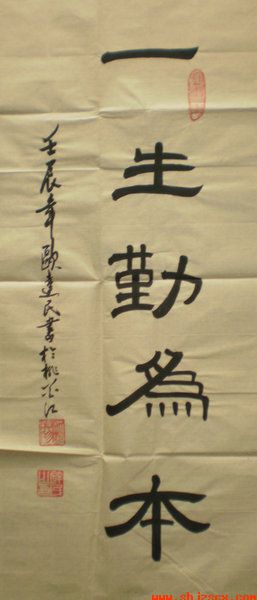 一生勤為本
壬辰年歐建民書於桃花江
www.shjzscx.com